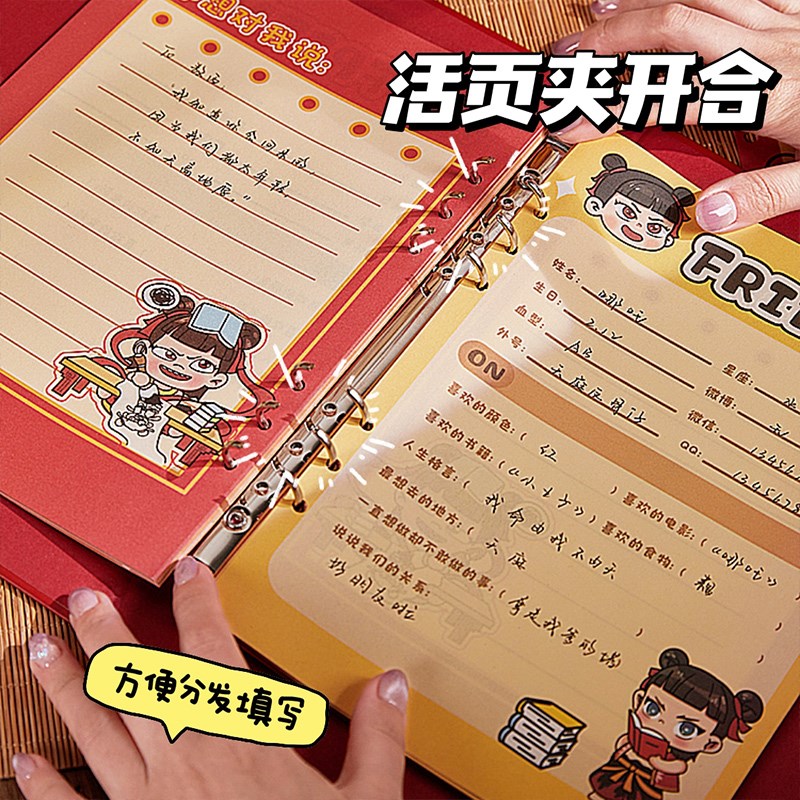 活页夹开合
想对我说:
To 敖丙:
"我知道你会回来的,
因为我们都太年轻,
不知天高地厚。"
FRI
姓名: 哪吒
生日: 2.14
星座: 水
血型: AB
微博:
外号:
微信: 123456
QQ: 12345678
ON
喜欢的颜色:( 红 )
喜欢的书籍:( )
喜欢的电影:( 《哪吒》 )
人生格言:( 我命由我不由天
喜欢的食物:(
最想去的地方:( 天庭 )
一直想做却不敢做的事:( 拿走我爹的塔 )
说说我们的关系:
好朋友啦
方便分发填写